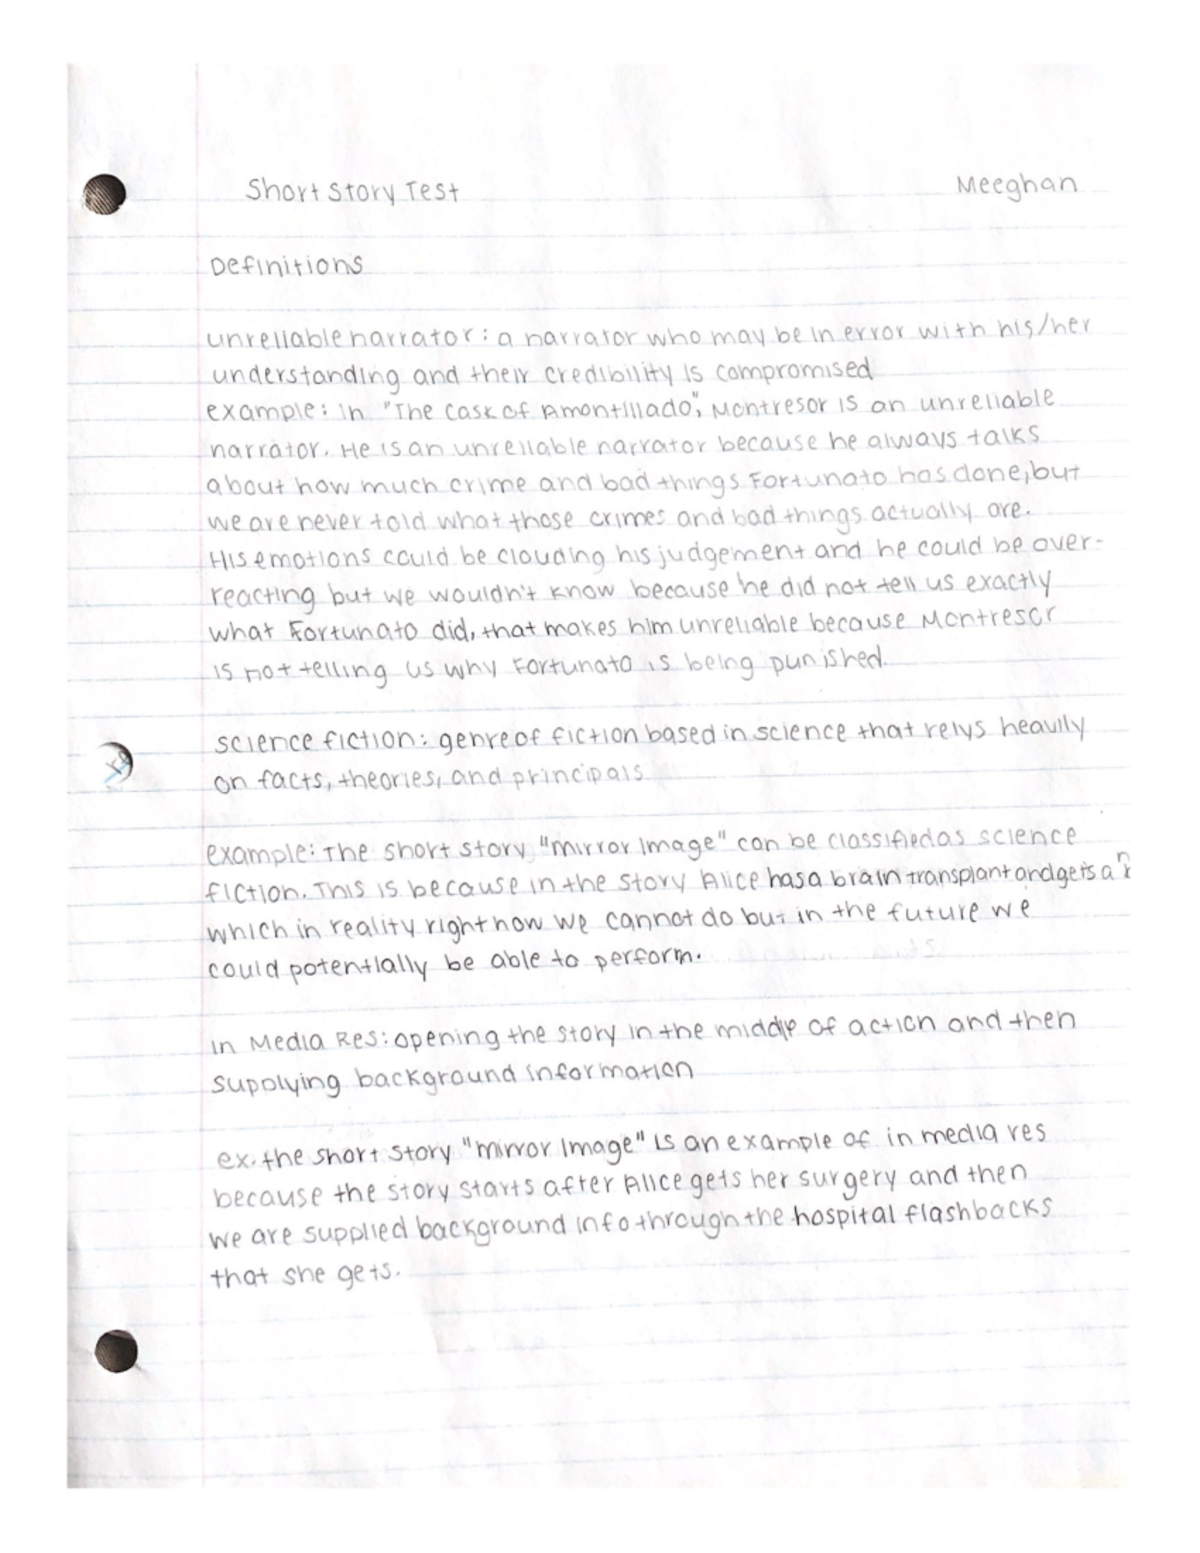 Short Story Test Meeghan
Definitions
unreliable narrator: a narrator who may be in error with his/her
understanding and their credibility is compromised
example: in "The Cask of Amontillado", Montresor is an unreliable
narrator. He is an unreliable narrator because he always talks
about how much crime and bad things Fortunato has done, but
we are never told what those crimes and bad things actually are.
His emotions could be clouding his judgement and he could be over-
reacting but we wouldn't know because he did not tell us exactly
what Fortunato did, that makes him unreliable because Montresor
is not telling us why Fortunato is being punished.
science fiction: genre of fiction based in science that relys heavily
on facts, theories, and principals
example: The short story "mirror Image" can be classified as science
fiction. This is because in the story Alice has a brain transplant and gets a
which in reality right now we cannot do but in the future we
could potentially be able to perform.
in Media Res: opening the story in the middle of action and then
supplying background information
ex. the short story "mirror Image" is an example of in media res
because the story starts after Alice gets her surgery and then
we are supplied background info through the hospital flashbacks
that she gets.